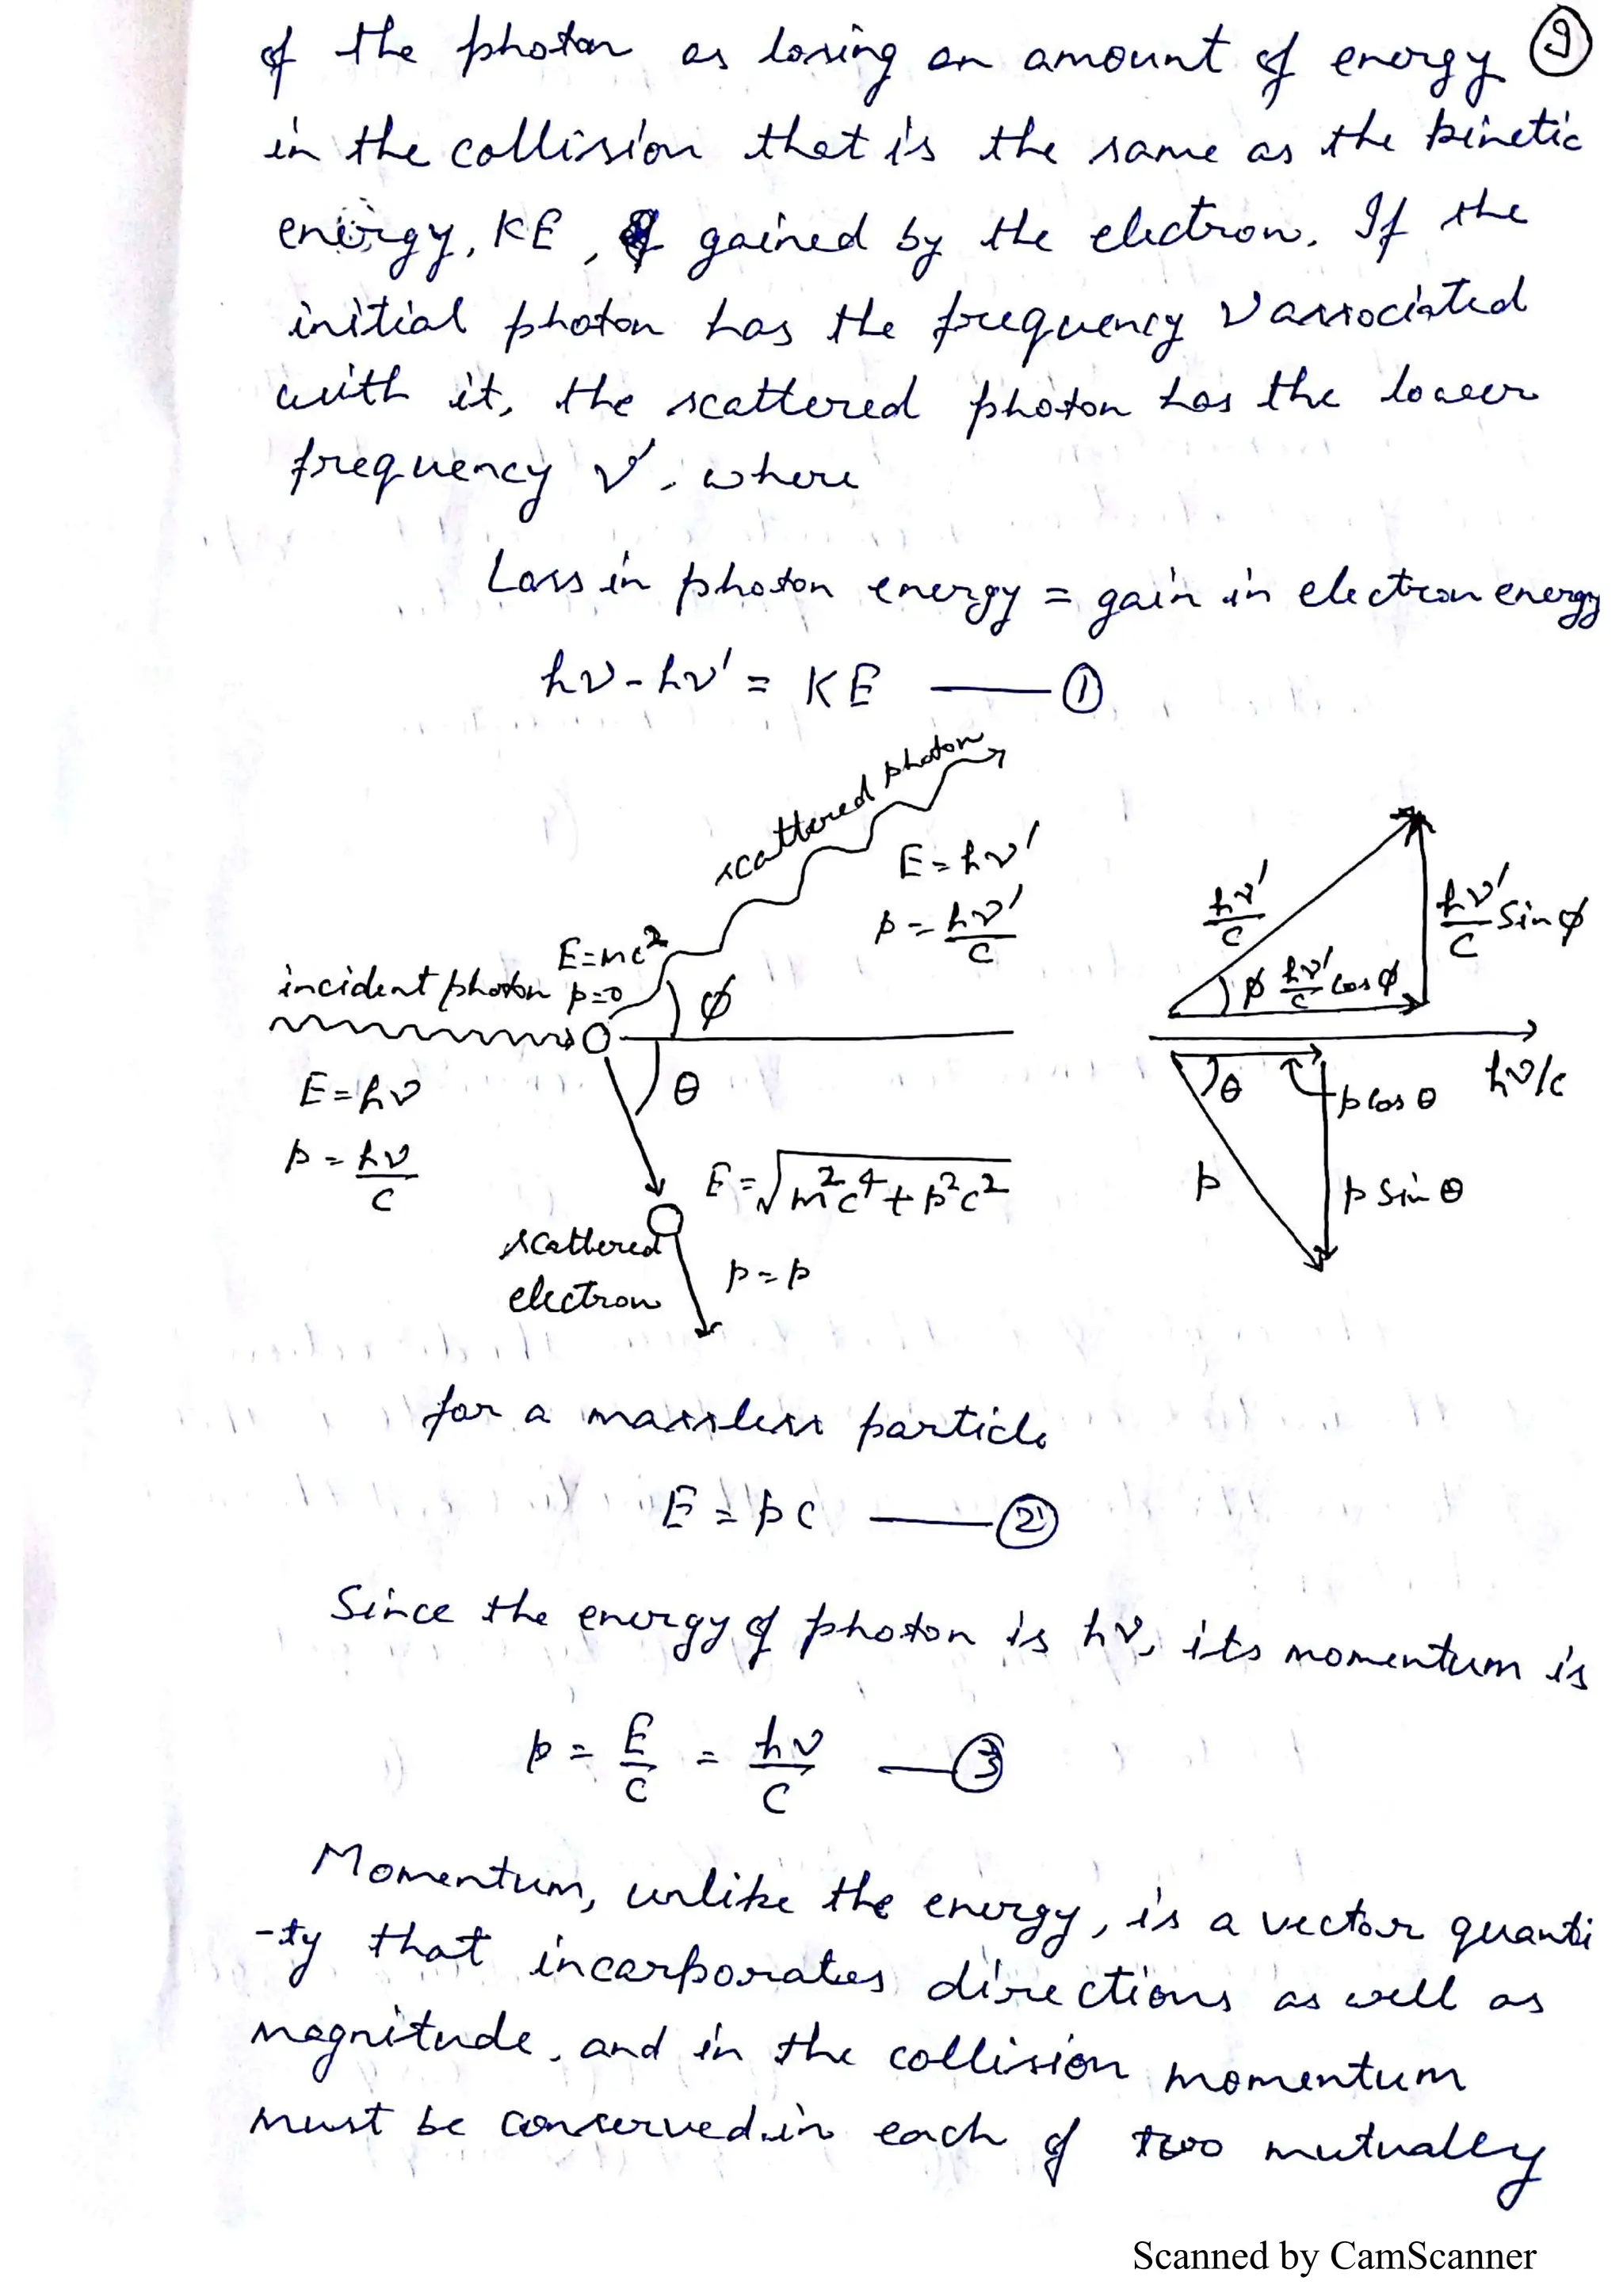 of the photon as losing an amount of energy 9
in the collision that is the same as the kinetic
energy, KE, gained by the electron. If the
initial photon has the frequency ν associated
with it, the scattered photon has the lower
frequency ν', where
Loss in photon energy = gain in electron energy
hν - hν' = KE — 1
scattered photon
E = hν'
p = hν'/c
E = mc²
p = 0
incident photon
ϕ
θ
E = hν
p = hν/c
E = √m²c⁴ + p²c²
p = p
scattered
electron
hν'/c
hν'/c sin ϕ
ϕ hν'/c cos ϕ
hν/c
θ
p cos θ
p
p sin θ
for a massless particle
E = pc — 2
Since the energy of photon is hν, its momentum is
p = E/c = hν/c — 3
Momentum, unlike the energy, is a vector quanti
-ty that incorporates directions as well as
magnitude, and in the collision momentum
must be conserved in each of two mutually
Scanned by CamScanner